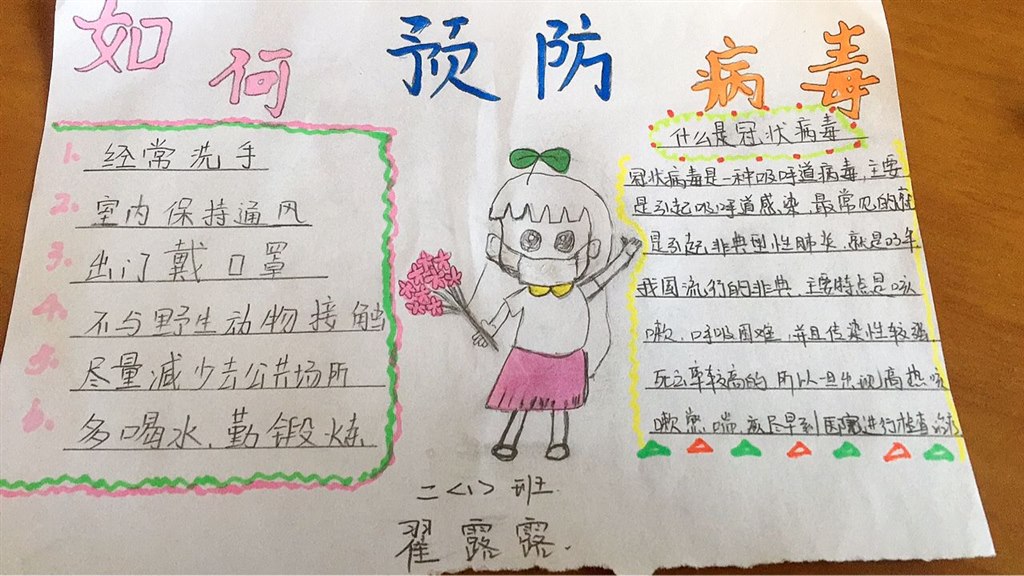 如何预防病毒
1. 经常洗手
2. 室内保持通风
3. 出门戴口罩
4. 不与野生动物接触
5. 尽量减少去公共场所
6. 多喝水、勤锻炼
什么是冠状病毒
冠状病毒是一种呼吸道病毒,主要
是引起呼吸道感染,最常见的症
是引起非典型性肺炎,就是03年
我国流行的非典,主要特点是咳
嗽、呼吸困难,并且传染性较强
死亡率较高的 所以一旦出现高热咳
嗽、喘,应尽早到医院进行检查
二<1>班
翟露露.